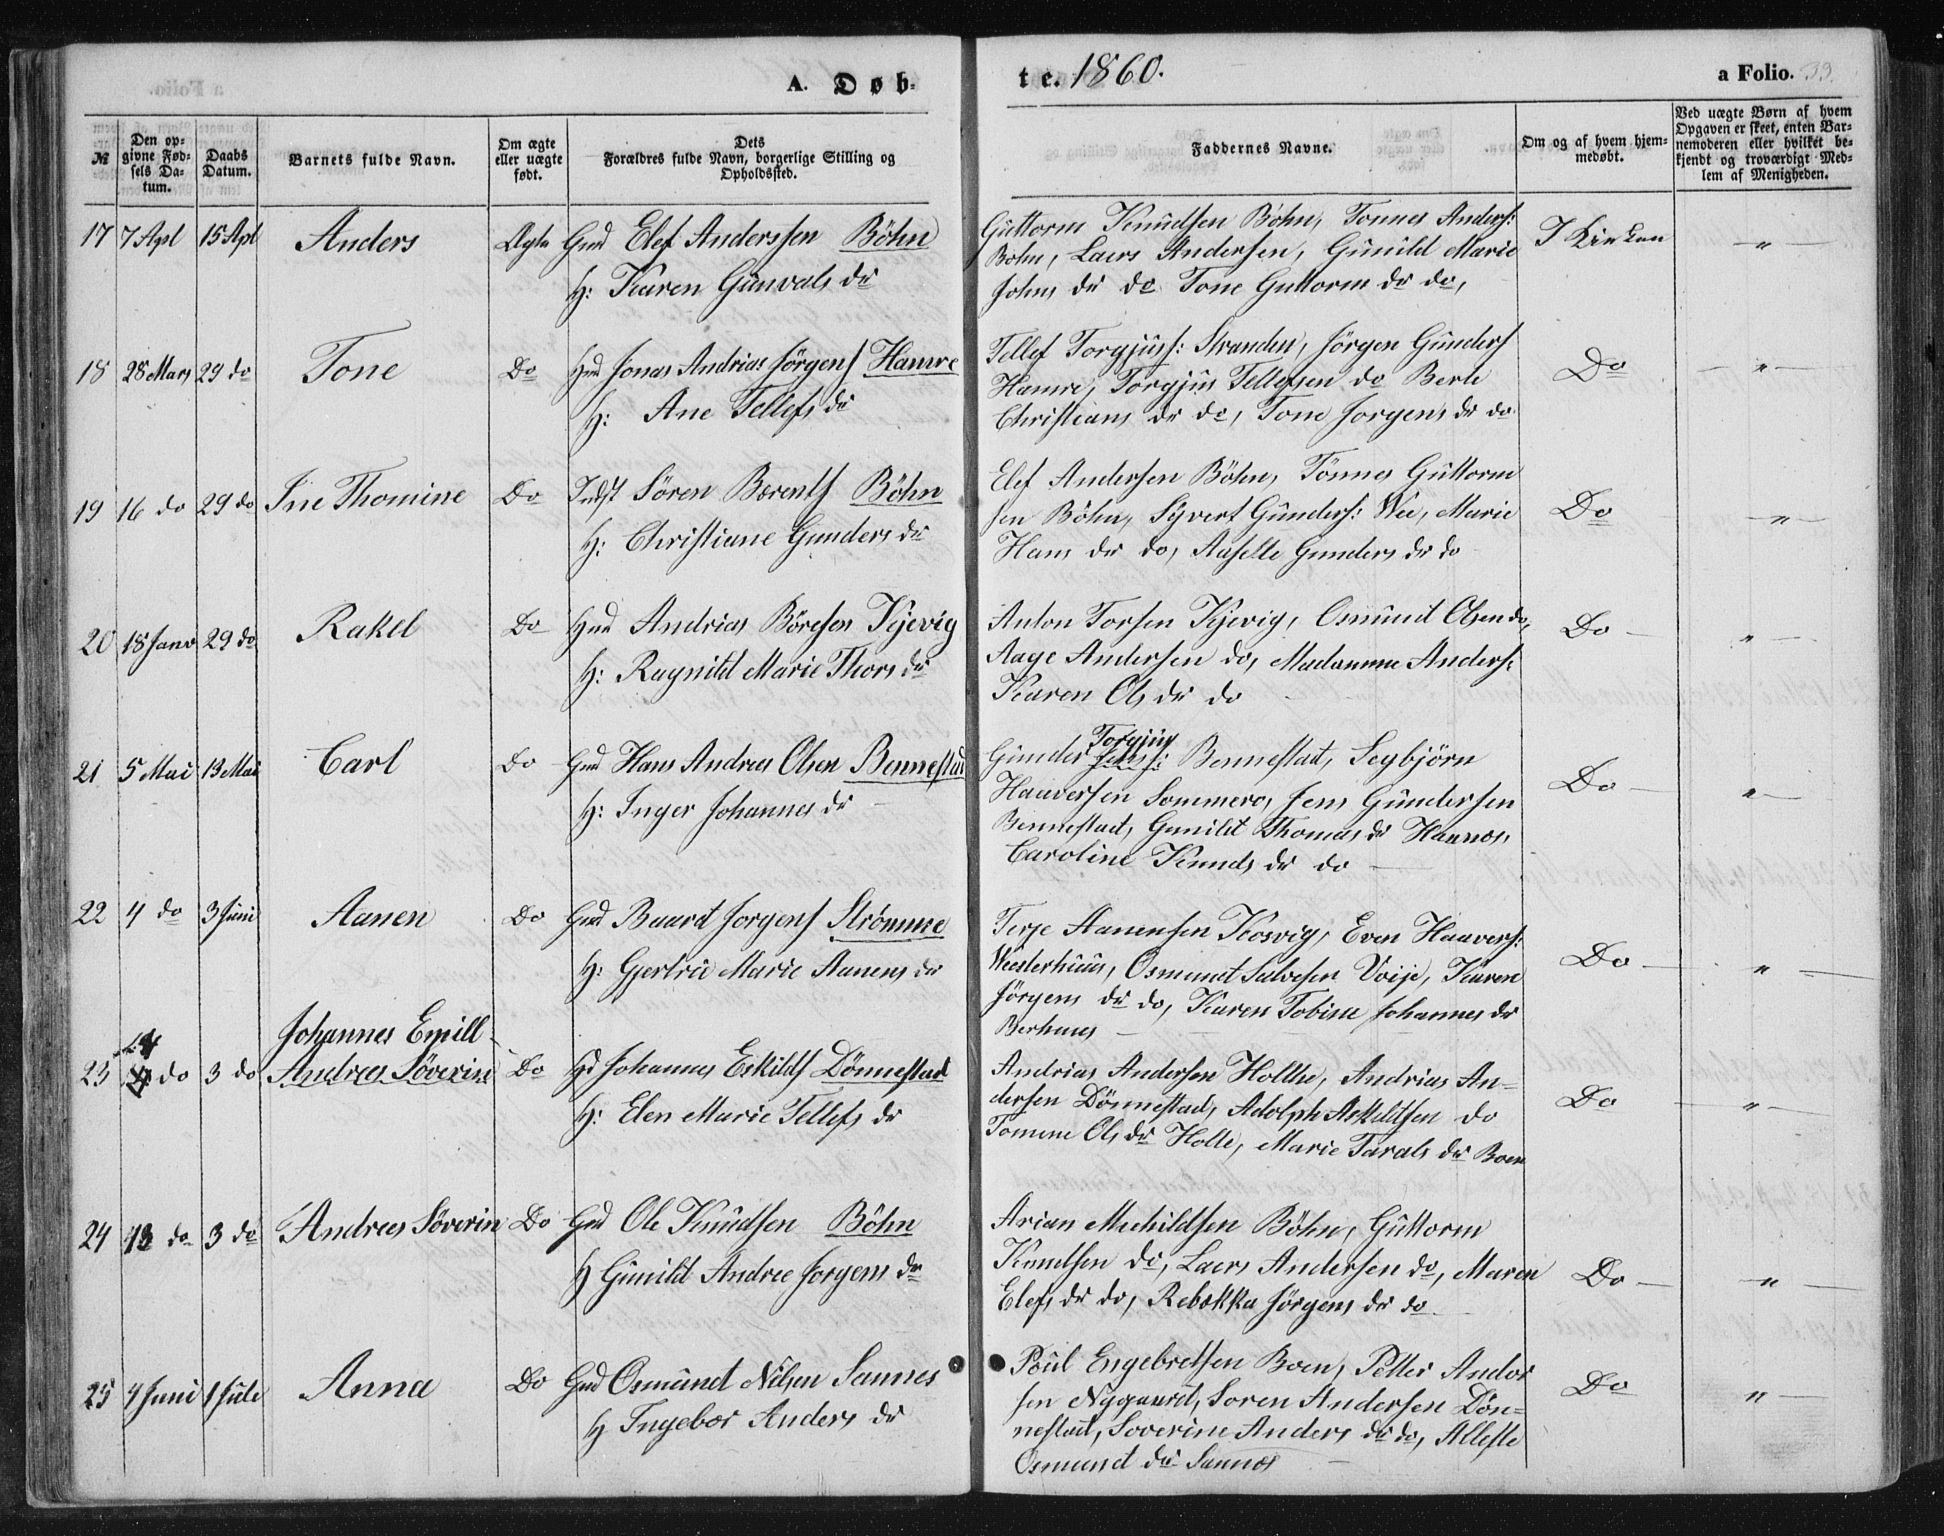 A. Døb-
te. 1860.
a Folio. 33.
№
Den op-
givne Fød-
sels Da-
tum.
Daabs
Datum.
Barnets fulde Navn.
Om ægte
eller uægte
født.
Dets
Forældres fulde Navn, borgerlige Stilling og
Opholdssted.
Faddernes Navne.
Om og af hvem hjem-
medøbt.
Ved uægte Børn af hvem
Opgaven er skeet, enten Bar-
nemoderen eller hvilket be-
kjendt og troværdigt Med-
lem af Menigheden.
17 7 Apl 15 Apl Anders Ægte Gmd Elef Anderssen Böhn
H: Karen Gunvals dr
Guttorm Knudsen Böhn, Tönnes Anders:
Bohn, Laers Andersen, Gunild Marie
Johns dr do Tone Guttorm dr do,
I Kirken "
18 28 Mars 29 do Tone Do Hmd Jonas Andrias Jörgens Hamre
H: Ane Tellefs dr
Tellef Torgjus: Stranden, Jörgen Gunders
Hamre, Torgjus Tellefsen do Berte
Christians dr do, Tone Jorgens dr do
Do "
19 16 do 29 do Ine Thomine Do Indst Sören Bærents Böhn
H: Christiane Gunders dr
Elef Andersen Böhn, Tönnes Guttorm
sen Böhn, Syvert Gunders: Wee, Marie
Hans dr do, Aaselle Gunders dr do
Do "
20 18 Janv 29 do Rakel Do Hmd Andrias Böresen Kjevig
H: Ragnild Marie Thors dr
Anton Torsen Kjevig, Osmund Olsen do,
Aage Andersen do, Madamme Anders:
Karen Ols dr do
Do "
21 5 Mai 13 Mai Carl Do Gmd Hans Andreas Olsen Bennestad
H: Inger Johannes dr
Torgjus
Gunder Bennestad, Segbjörn
Haaversen Sommero, Jens Gundersen
Bennestad, Gunild Thomas dr Haanes,
Caroline Knuds dr do
Do "
22 4 do 3 Juni Aanen Do Gmd Baard Jorgens Strömme
H: Gjertrue Marie Aanens dr
Terje Aanensen Kosvig, Even Haavers:
Westerhuus, Osmund Salvesen Voije, Karen
Jörgens dr do, Karen Tobine Johannes dr
Berhuus
Do "
Johannes Emill
23 14 do 3 do Andreas Söverin Do Hd Johannes Eskilds Dönnestad
H: Elen Marie Tellefs dr
Andrias Andersen Holthe, Andrias An-
dersen Dönnestad, Adolph Askildsen do
Tomine Ols dr Holte, Marie Tarals dr Boen
Do "
24 13 do 3 do Andreas Söverin Do Gmd Ole Knudsen Böhn
H Gunild Andree Jorgens dr
Arian Michildsen Böhn, Guttorm
Knudsen do, Laers Andersen do, Maren
Elefs dr do, Rebekka Jörgens dr do
Do "
25 4 Juni 1 Juli Anna Do Gmd Osmund Nilsen Sannes
H Ingebor Anders dr
Poul Engebretsen Boen, Petter Ander
sen Nygaard, Soren Andersen Dön-
nestad, Soverine Anders dr do, Alleste
Osmund dr Sannes
Do "